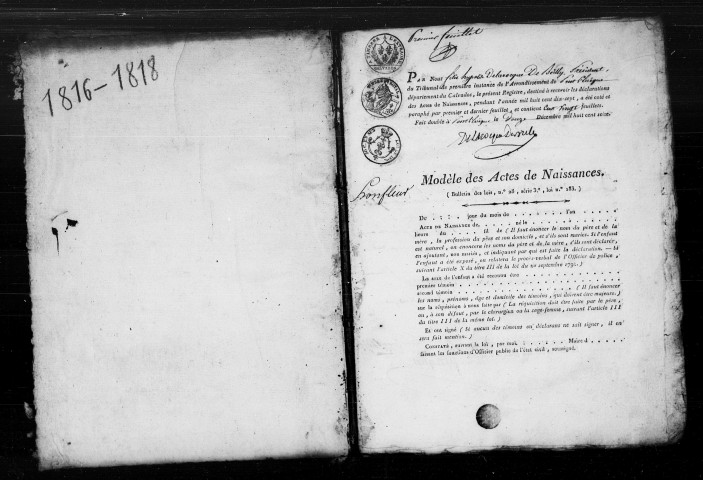 1816-1818
Premier feuillet
Par Nous
du Tribunal de première instance de l'Arrondissement de Pont l'Evêque
département du Calvados, le présent Registre, destiné à recevoir les déclarations
des Actes de Naissances, pendant l'année mil huit cent dix-sept, a été coté et
paraphé par premier et dernier feuillets, et contient feuillets.
Fait double à Pont l'Evêque le Décembre mil huit cent seize
Honfleur
Modèle des Actes de Naissances.
( Bulletin des lois, n.° 28, série 3.e, loi n.° 183. )
Du jour du mois de l'an
Acte de Naissance de né le
heures du fil de ( Il faut énoncer le nom du père et de la
mère, la profession du père et son domicile, et s'ils sont mariés. Si l'enfant
est naturel, on énoncera les noms du père et de la mère, s'ils sont déclarés,
en ajoutant, non mariés, et indiquant par qui est faite la déclaration. — Si
l'enfant a été exposé, on relatera le procès-verbal de l'Officier de police,
suivant l'article X du titre III de la loi du 20 septembre 1792. )
Le sexe de l'enfant a été reconnu être
premier témoin
second témoin ( Il faut énoncer
les noms, prénoms, âge et domicile des témoins, qui doivent être majeurs. )
sur la réquisition à nous faite par ( La réquisition doit être faite par le père,
ou, à son défaut, par le chirurgien ou la sage-femme, suivant l'article III
du titre III de la même loi. )
Et ont signé ( Si aucuns des témoins ou déclarans ne sait signer, il en
sera fait mention. )
Constaté, suivant la loi, par moi Maire d
faisant les fonctions d'Officier public de l'état civil, soussigné.